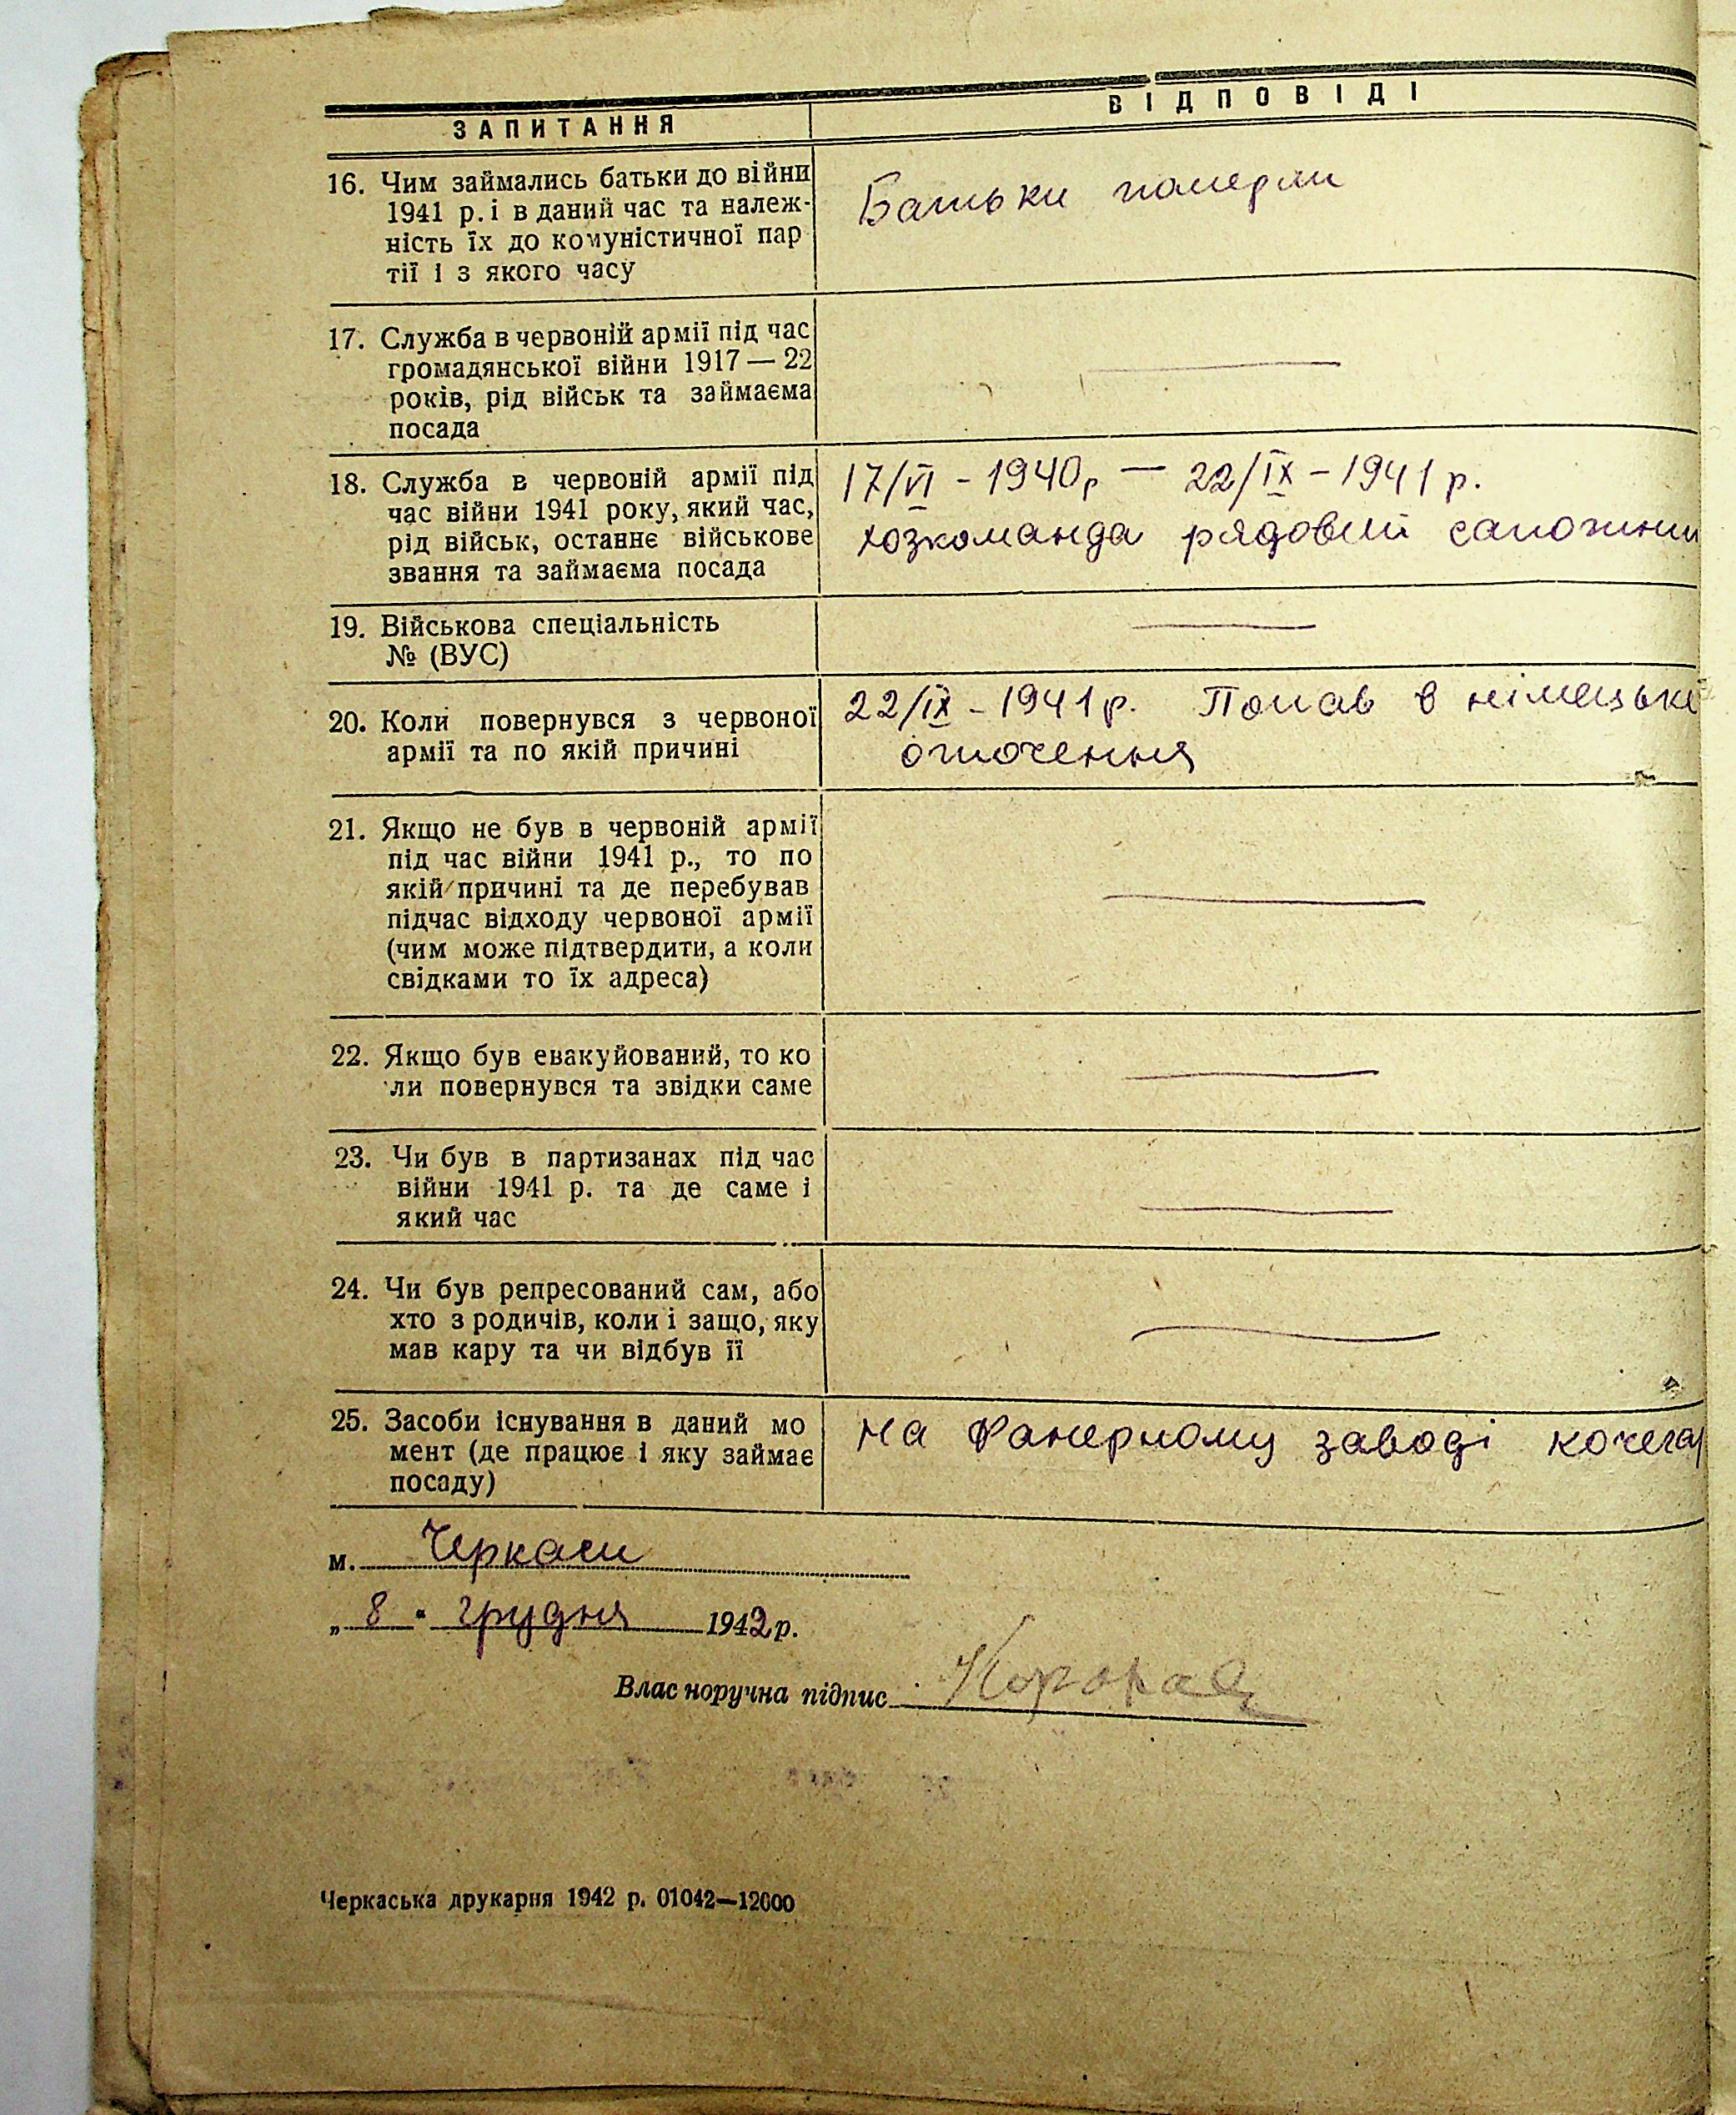 ЗАПИТАННЯ
ВІДПОВІДІ
16. Чим займались батьки до війни
1941 р. і в даний час та належ-
ність їх до комуністичної пар
тії і з якого часу
Батьки померли
17. Служба в червоній армії під час
громадянської війни 1917 — 22
років, рід військ та займаєма
посада
18. Служба в червоній армії під
час війни 1941 року, який час,
рід військ, останнє військове
звання та займаєма посада
17/VI - 1940р — 22/IX - 1941 р.
хозкоманда рядовий
19. Військова спеціальність
№ (ВУС)
20. Коли повернувся з червоної
армії та по якій причині
22/IX - 1941 р. Попав в німецьке
оточення
21. Якщо не був в червоній армії
під час війни 1941 р., то по
якій причині та де перебував
підчас відходу червоної армії
(чим може підтвердити, а коли
свідками то їх адреса)
22. Якщо був евакуйований, то ко
ли повернувся та звідки саме
23. Чи був в партизанах під час
війни 1941 р. та де саме і
який час
24. Чи був репресований сам, або
хто з родичів, коли і защо, яку
мав кару та чи відбув її
25. Засоби існування в даний мо
мент (де працює і яку займає
посаду)
на фанерному заводі кочегар
м. Черкаси
„ 8 “ грудня 1942 р.
Влас норучна підпис
Черкаська друкарня 1942 р. 01042—12000